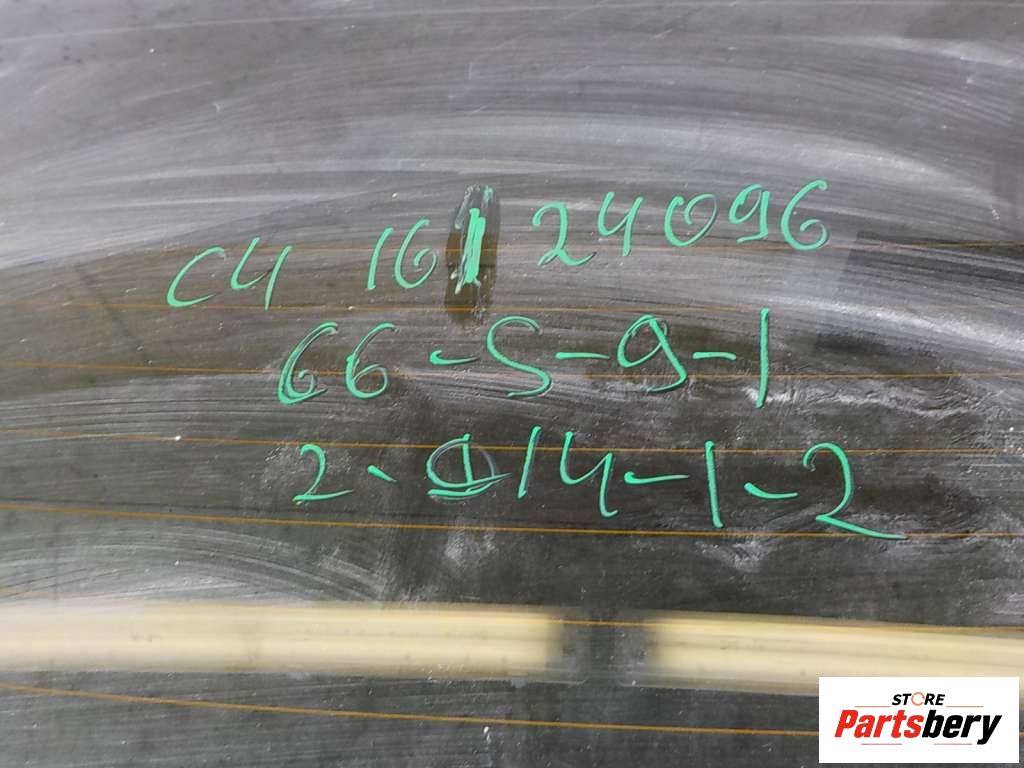 C4 161 24096
66-5-9-1
2-114-1-2
STORE
Partsbery